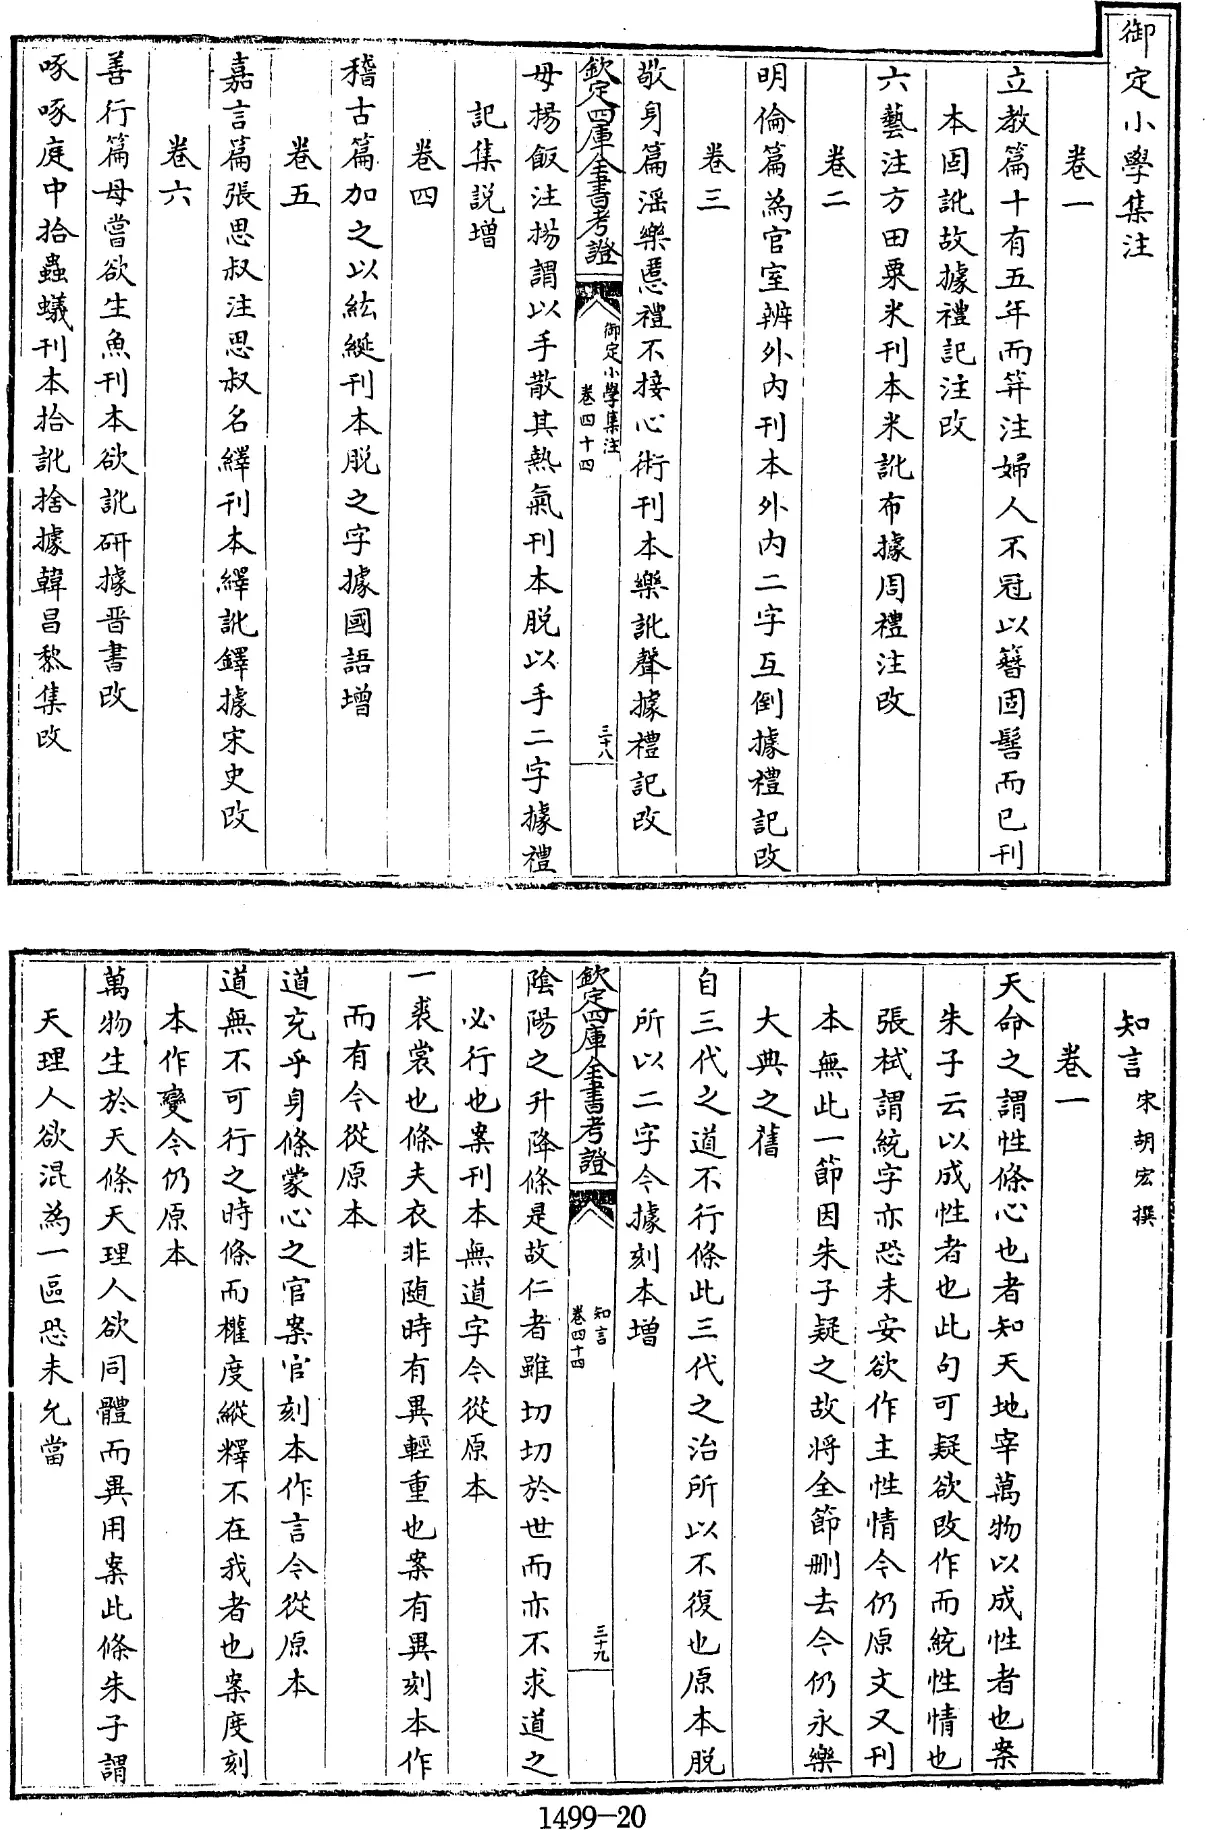 御定小學集注
卷一
立教篇十有五年而笄注婦人不冠以簪固髻而已刊
本固訛故據禮記注改
六藝注方田粟米刊本米訛布據周禮注改
卷二
明倫篇為宫室辨外内刊本外内二字互倒據禮記改
卷三
敬身篇滛樂慝禮不接心術刊本樂訛聲據禮記改
欽定四庫全書考證
御定小學集注
卷四十四
三十八
毋揚飯注揚謂以手散其熱氣刊本脱以手二字據禮
記集説增
卷四
稽古篇加之以紘綖刊本脱之字據國語增
卷五
嘉言篇張思叔注思叔名繹刊本繹訛鐸據宋史改
卷六
善行篇母嘗欲生魚刊本欲訛研據晋書改
啄啄庭中拾蟲蟻刊本拾訛捨據韓昌黎集改
知言 宋胡宏撰
卷一
天命之謂性條心也者知天地宰萬物以成性者也案
朱子云以成性者也此句可疑欲改作而統性情也
張栻謂統字亦恐未安欲作主性情今仍原文又刊
本無此一節因朱子疑之故將全節刪去今仍永樂
大典之舊
自三代之道不行條此三代之治所以不復也原本脱
所以二字今據刻本增
欽定四庫全書考證
知言
卷四十四
三十九
陰陽之升降條是故仁者雖切切於世而亦不求道之
必行也案刊本無道字今從原本
一裘裳也條夫衣非随時有異輕重也案有異刻本作
而有今從原本
道充乎身條蒙心之官案官刻本作言今從原本
道無不可行之時條而權度縱釋不在我者也案度刻
本作變今仍原本
萬物生於天條天理人欲同體而異用案此條朱子謂
天理人欲混為一區恐未允當
1499-20